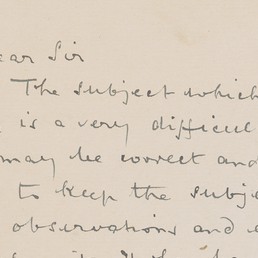 ear Sir
The subject which
is a very difficul
may be correct and
to keep the subje
observations and